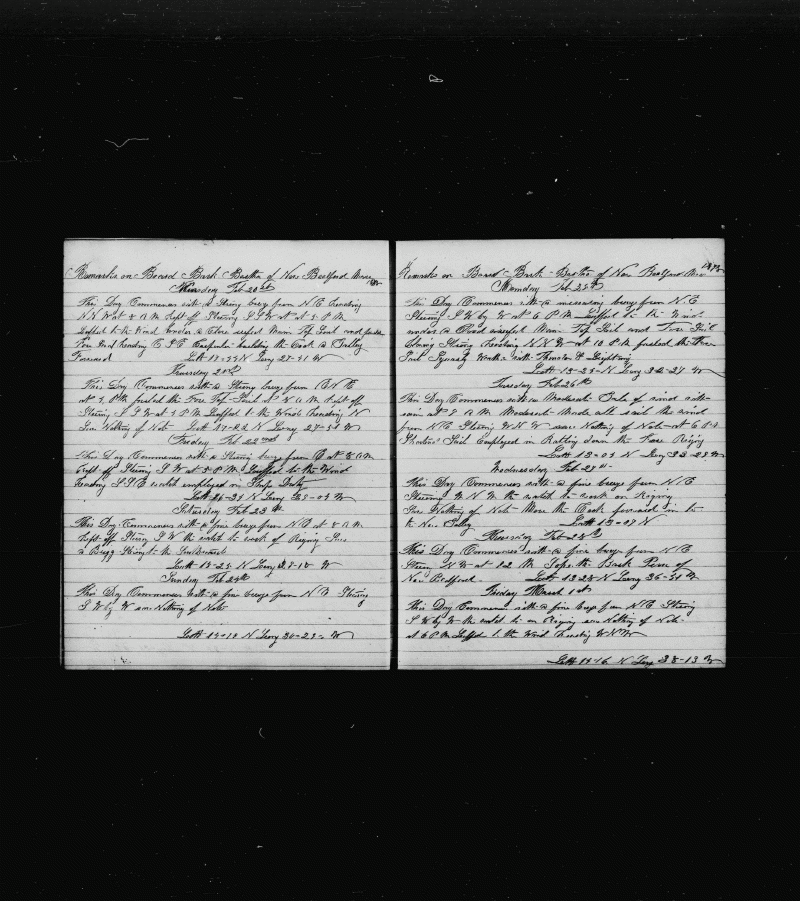 Remarks on Board Bark Bartha of New Bedford
Feb 20
This Day Commences with a Strong breeze from N E heading
N N W at 8 A M Kept off Steering S S W at 5 P M
Luffed to the Wind under a Close reefed Main Top Sail and
heading E S E Carpenter building the Cook a Galley
Forward Latt 17-44 N Long 27-51 W
Thursday 21st
This Day Commences with a Strong breeze from E N E
at 5 P M furled the Fore Top Sail at 8 A M Kept off
Steering S S W at 5 P M Luffed to the Wind heading N
Saw Nothing of Note Latt 17-22 N Long 27-54 W
Friday Feb 22nd
This Day Commences with a Strong breeze from E at 8 A M
Kept off Steering S W at 5 P M Luffed to the Wind
heading S S E watch employed in Ships Duty
Latt 16-24 N Long 28-04 W
Saturday Feb 23rd
This Day Commences with a fine breeze from N E at 8 A M
Kept off Steering S W the watch to work at Riging Saw
a Brigg Steering to the Southward
Latt 15-25 N Long 28-10 W
Sunday Feb 24th
This Day Commences with a fine breeze from N E Steering
S W by W saw Nothing of Note
Latt 14-19 N Long 30-23 W
Remarks on Board Bark Bartha of New Bedford
Monday Feb 25th
This Day Commences with a increasing breeze from N E
Steering S W by W at 6 P M Luffed to the Wind
under a Close reefed Main Top Sail and Fore Sail
Strong heading N N W at 10 P M furled the Fore
Sail Squally Weather with Thunder & Lighting
Latt 13-25 N Long 32-27 W
Tuesday Feb 26th
This Day Commences with a Moderate Gale of wind with
rain at 8 A M Moderate Made all sail the wind
from N E Steering W N W saw Nothing of Note at 6 P M
Shortened Sail Employed in Ratling down the Fore Riging
Latt 13-09 N Long 33-29 W
Wednesday Feb 27th
This Day Commences with a fine breeze from N E
Steering W N W the watch to work on Riging
Saw Nothing of Note Move the Cook forward in to
his New Galley Latt 13-07 N
Thursday Feb 28th
This Day Commences with a fine breeze from N E
Steering N W at 12 M Spoke the Bark of
New Bedford Latt 13-28 N Long 36-51 W
Friday March 1st
This Day Commences with a fine breeze from N E Steering
S W by W the watch to on Riging saw Nothing of Note
at 6 P M Luffed to the Wind heading W N W
Latt 14-16 N Long 38-13 W